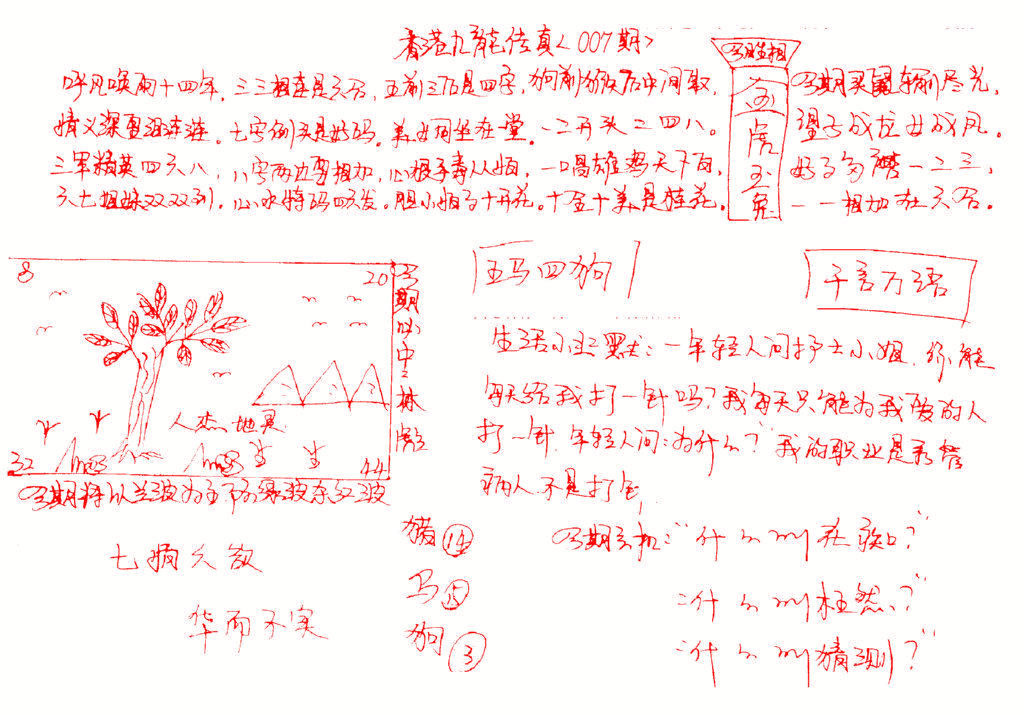 香港九龍传真<007期>
呼风唤雨十四年，三三相连是六合，五前三后是四字，狗前猴后中间取，
情义深更没连漣。七字倒头是好码。美女同坐在一堂。一二开头二四八。
三军精英四六八，八字两边要相加，心狠手毒从她，一口高雄鸡天下白，
六七姐妹双双到。心水特码四发。胆小如子十开花。十全十美是桂花。
另胜相
金
虎
玉
兔
另期买鼠车输尽光，
望子成龙女成凤。
好了多磨一二三，
一一相加在六合。
8
20
32
44
人杰地灵
另期必中
五马四狗
千言万语
生活小幽默：一年轻人问护士小姐，你能
每天给我打一针吗？我每天只能为我爱的人
打一针，年轻人问：为什么？我的职业是看管
病人，不是打针
另期将以兰波为主 市防绿波余红波
七 欠欲
华而不实
猪 14
马
狗 3
另期玄机："什么叫花 ？"
：什么叫枉然？"
：什么叫猜测？"